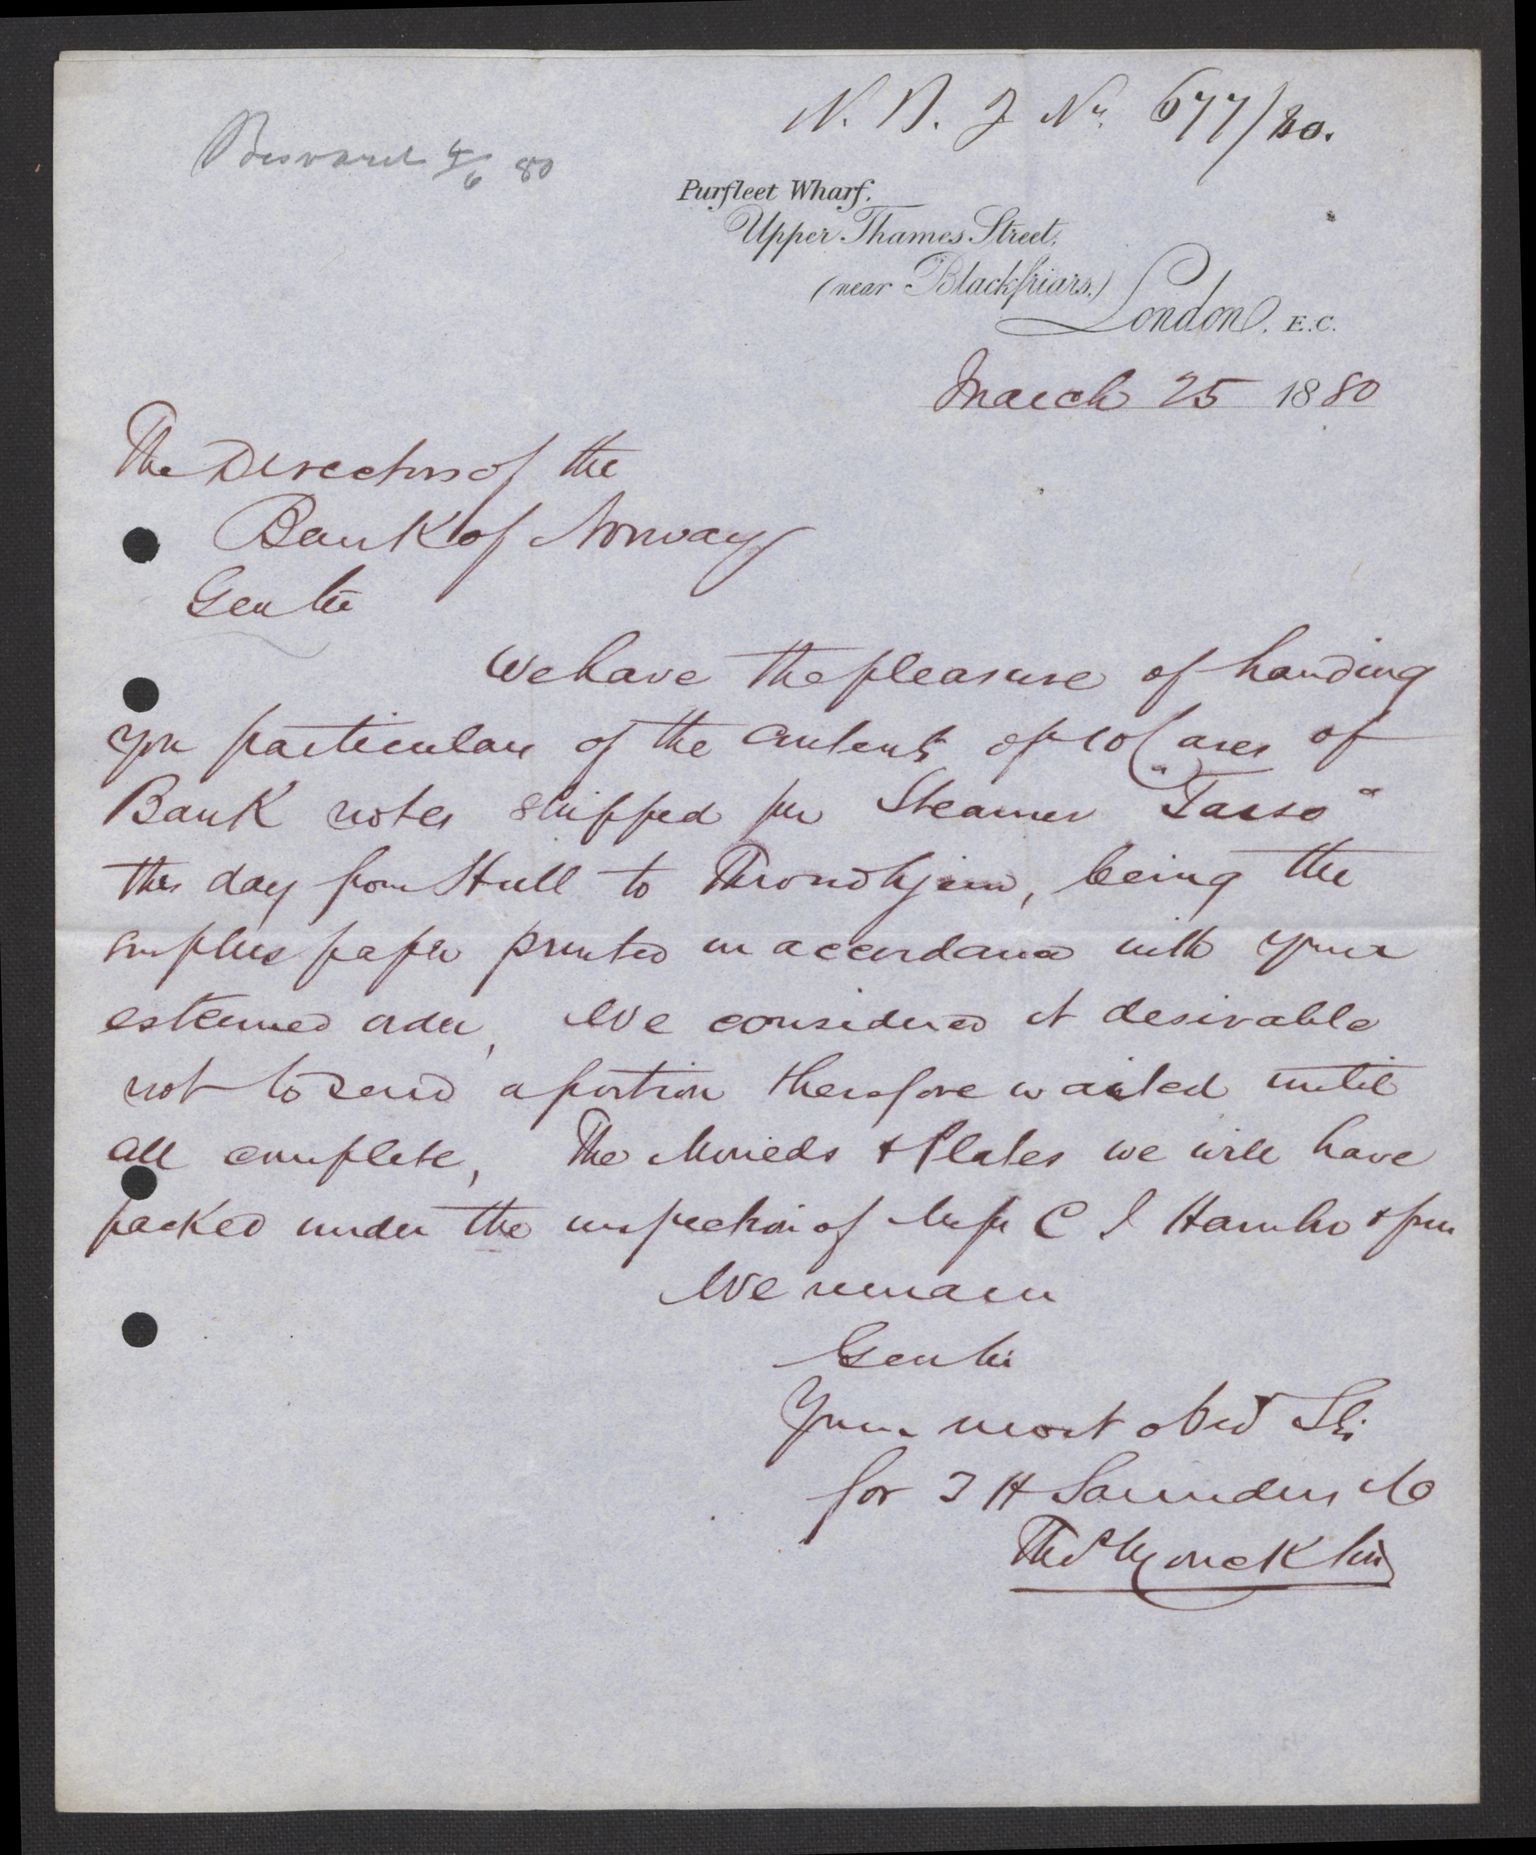 N. B. J No. 677/80.
Besvaret 4/6 80
Purfleet Wharf.
Upper Thames Street,
(near Blackfriars.)
London, E.C.
March 25 1880
The Directors of the
Bank of Norway
Gentn
We have the pleasure of handing
you particulars of the contents of 10 Cases of
Bank notes shipped per Steamer "Tasso"
this day from Hull to Throndhjem, being the
surplus paper printed in accordance with your
esteemed order, We considered it desirable
not to send a portion therefore waited until
all complete, The Moulds & Plates we will have
packed under the inspection of Messrs C J Hambro & Son
We remain
Gentn
Your most obed Sts
for T H Saunders & Co
Thos Moncktin